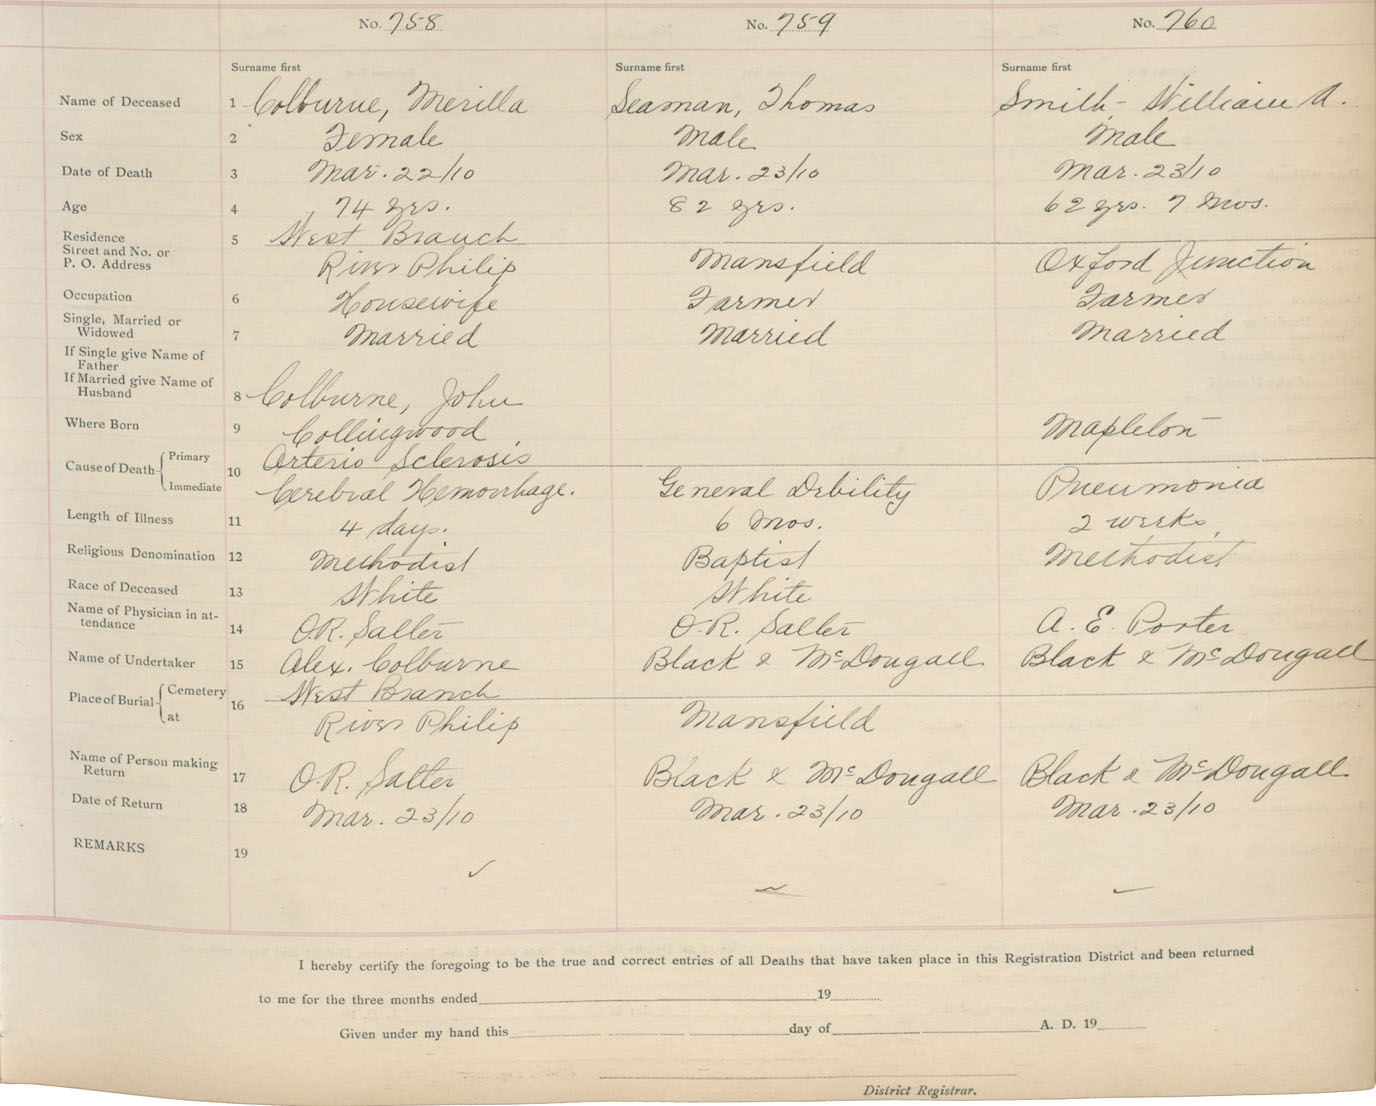 No. 758 No. 759 No. 760
Surname first Surname first Surname first
Name of Deceased 1 Colburne, Merilla Seaman, Thomas Smith - William A.
Sex 2 Female Male Male
Date of Death 3 Mar. 22/10 Mar. 23/10 Mar. 23/10
Age 4 74 yrs. 82 yrs. 62 yrs. 7 Mos.
Residence 5 West Branch
Street and No. or
P. O. Address River Philip Mansfield Oxford Junction
Occupation 6 Housewife Farmer Farmer
Single, Married or
Widowed 7 Married Married Married
If Single give Name of
Father
If Married give Name of
Husband 8 Colburne, John
Where Born 9 Collingwood Mapleton
Cause of Death Primary 10 Arterio Sclerosis
Immediate Cerebral Hemorrhage. General Debility Pneumonia
Length of Illness 11 4 days. 6 Mos. 2 weeks
Religious Denomination 12 Methodist Baptist Methodist
Race of Deceased 13 White White
Name of Physician in at-
tendance 14 O.R. Salter O.R. Salter A. E. Porter
Name of Undertaker 15 Alex. Colburne Black & McDougall Black & McDougall
Place of Burial Cemetery 16 West Branch
at River Philip Mansfield
Name of Person making
Return 17 O.R. Salter Black & McDougall Black & McDougall
Date of Return 18 Mar. 23/10 Mar. 23/10 Mar. 23/10
REMARKS 19
I hereby certify the foregoing to be the true and correct entries of all Deaths that have taken place in this Registration District and been returned
to me for the three months ended 19
Given under my hand this day of A. D. 19
District Registrar.